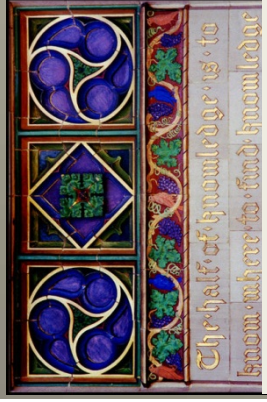 The half of knowledge is to
know where to find knowledge